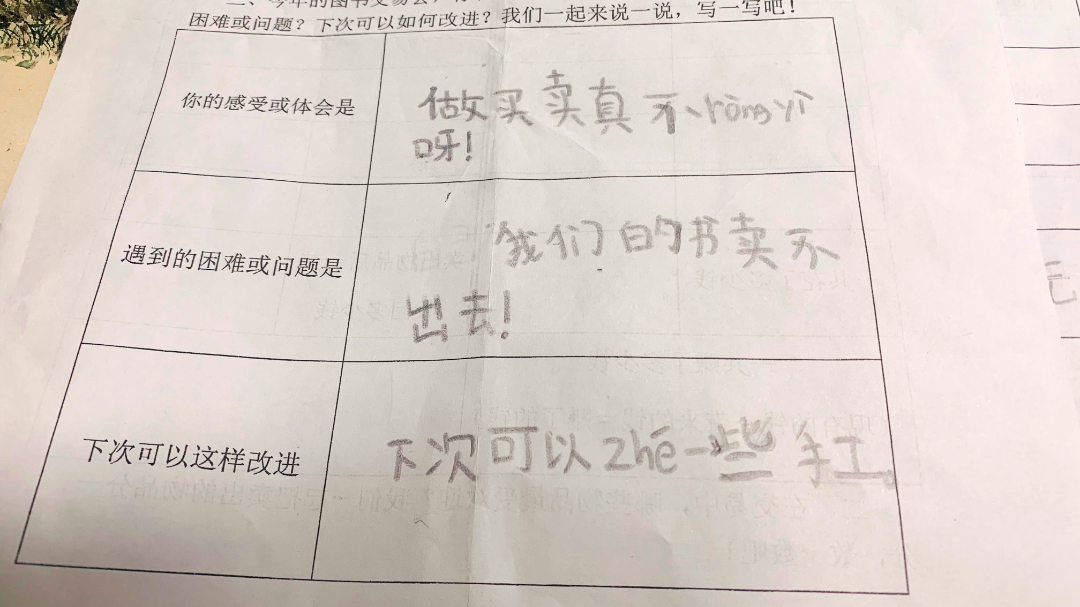 二、今年的图书交易会，
困难或问题？下次可以如何改进？我们一起来说一说，写一写吧！
你的感受或体会是
做买卖真不róng yì
呀！
遇到的困难或问题是
我们的书卖不
出去！
下次可以这样改进
下次可以zhé一些手工。